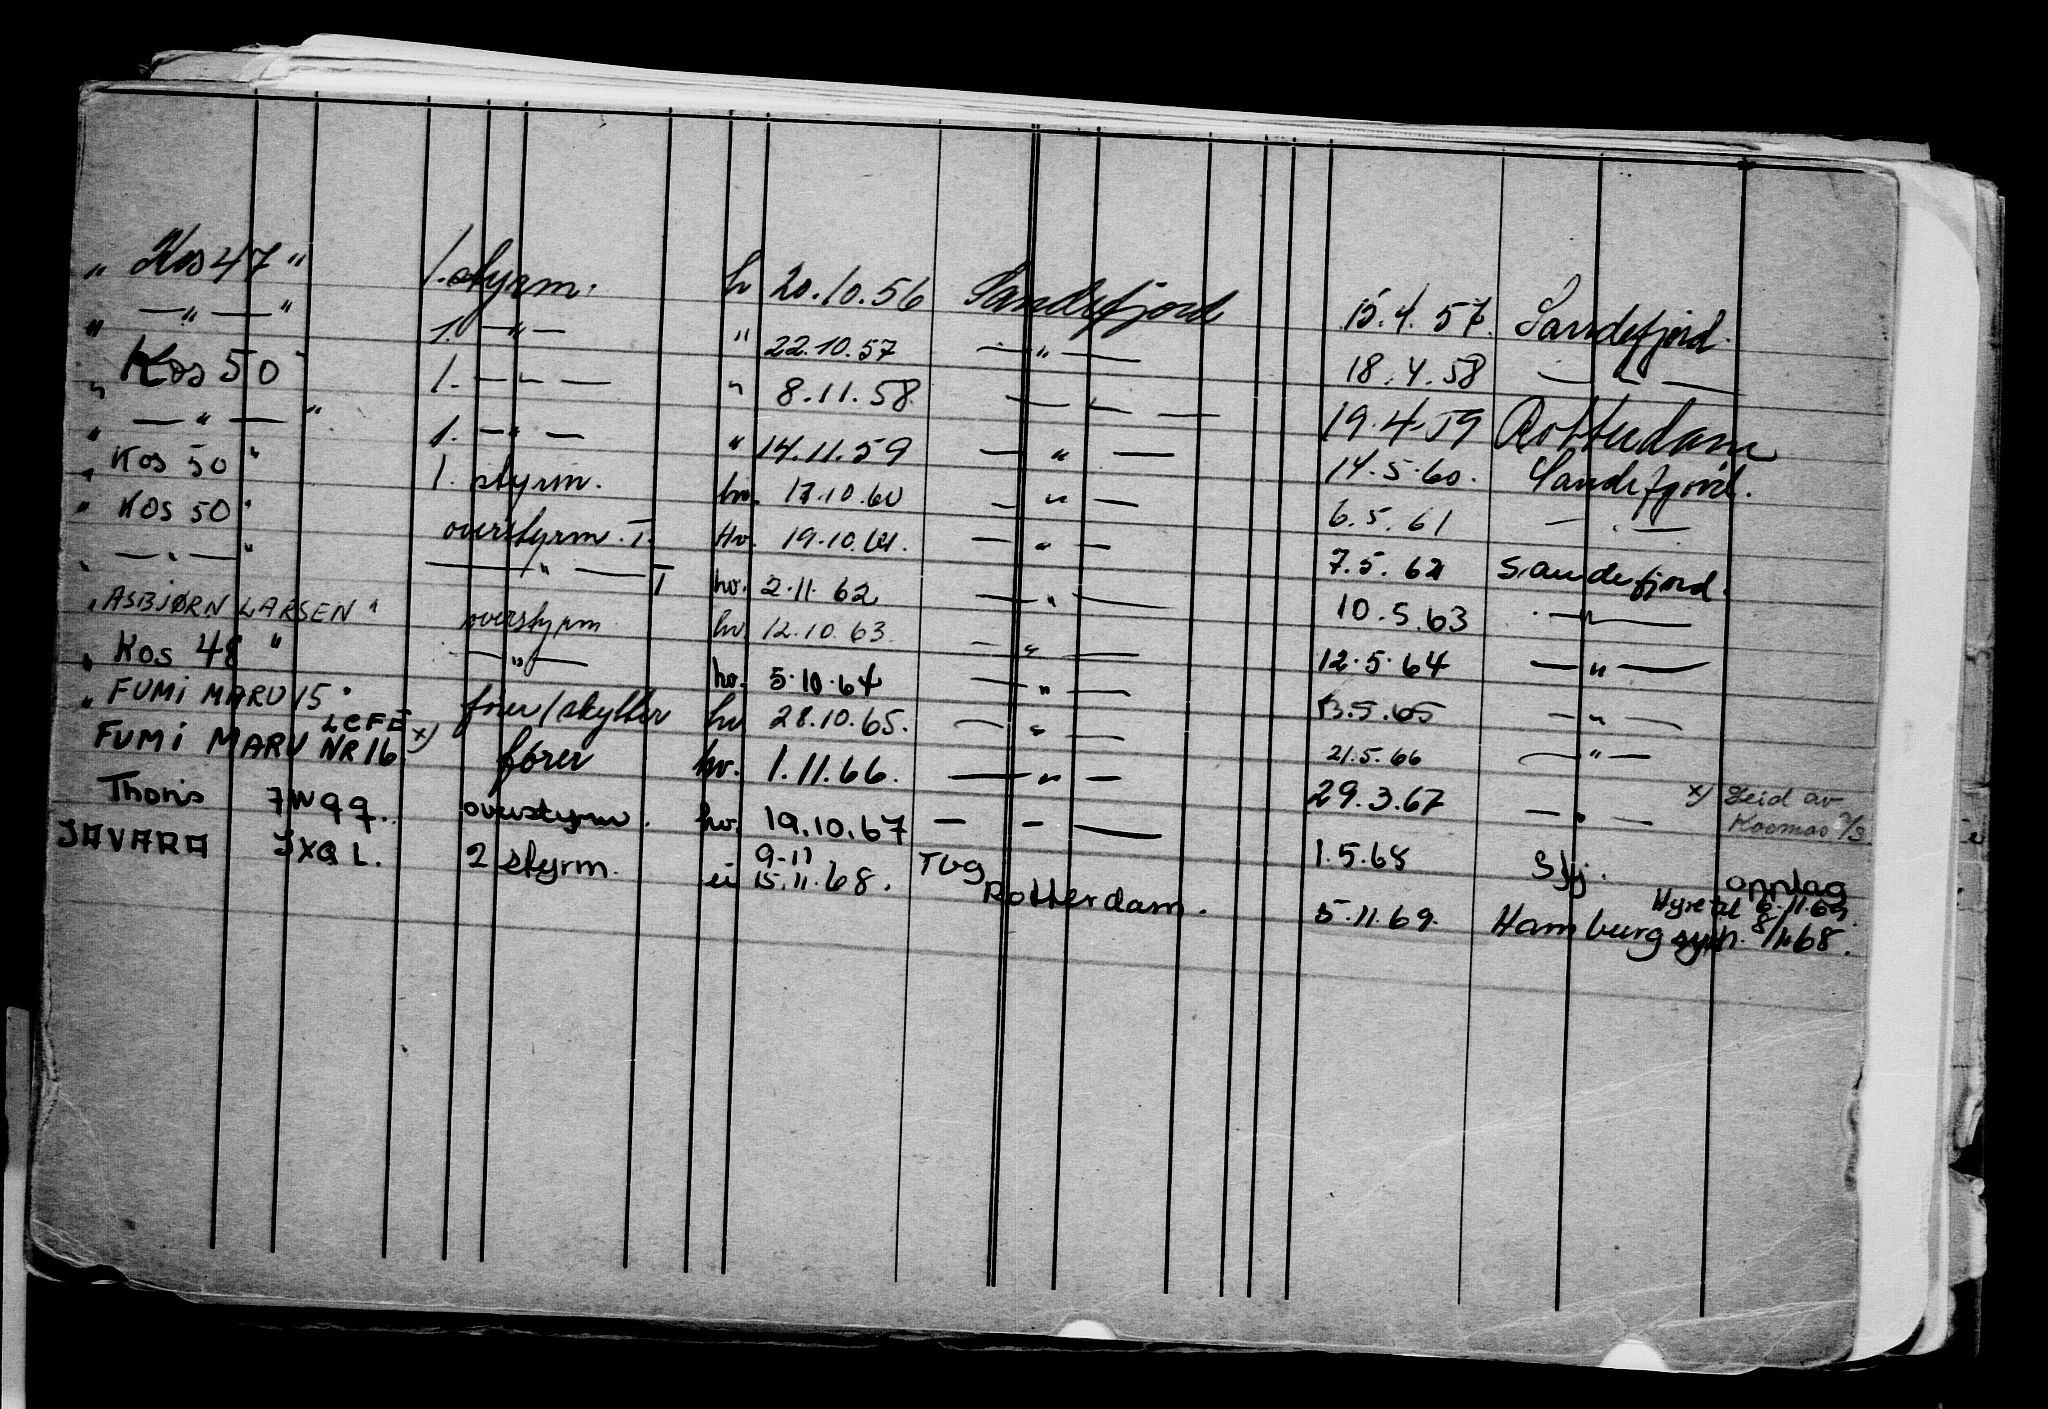 " Kos 47 " 1. styrm. hv 20.10.56 Sandefjord 15.4.57. Sandefjord.
" — " — " 1. — " — " 22.10.57 — " — 18.4.58 — " —
" Kos 50 " 1. — " — " 8.11.58 — " — 19.4.59 Rotterdam
" — " — " 1. — " — " 14.11.59 — " — 14.5.60. Sandefjord.
" Kos 50 " 1. styrm. hv. 17.10.60 — " — 6.5.61 — " —
" Kos 50 " overstyrm. T. Hv. 19.10.61. — " — 7.5.62 Sandefjord.
" — " — " — " — T hv. 2.11.62 — " — 10.5.63 — " —
" ASBJØRN LARSEN " overstyrm hv. 12.10.63. — " — 12.5.64 — " —
" Kos 48 " — " — hv. 5.10.64 — " — 13.5.65 — " —
" FUMI MARU 15 " fører/skytter hv 28.10.65. — " — 21.5.66 — " —
FUMI MARU NR 16 LCFE x) fører hv. 1.11.66. — " — 29.3.67 — " — x) Leid av Kosmos
Thoris JWQQ. overstyrm. hv. 19.10.67 — — — 1.5.68 Sfj. opplag
JAVARA JXQL. 2 styrm. ei 9-11 15.11.68. TBG Rotterdam. 5.11.69. Hamburg Hyre til 6.11.69. 8/11 68.